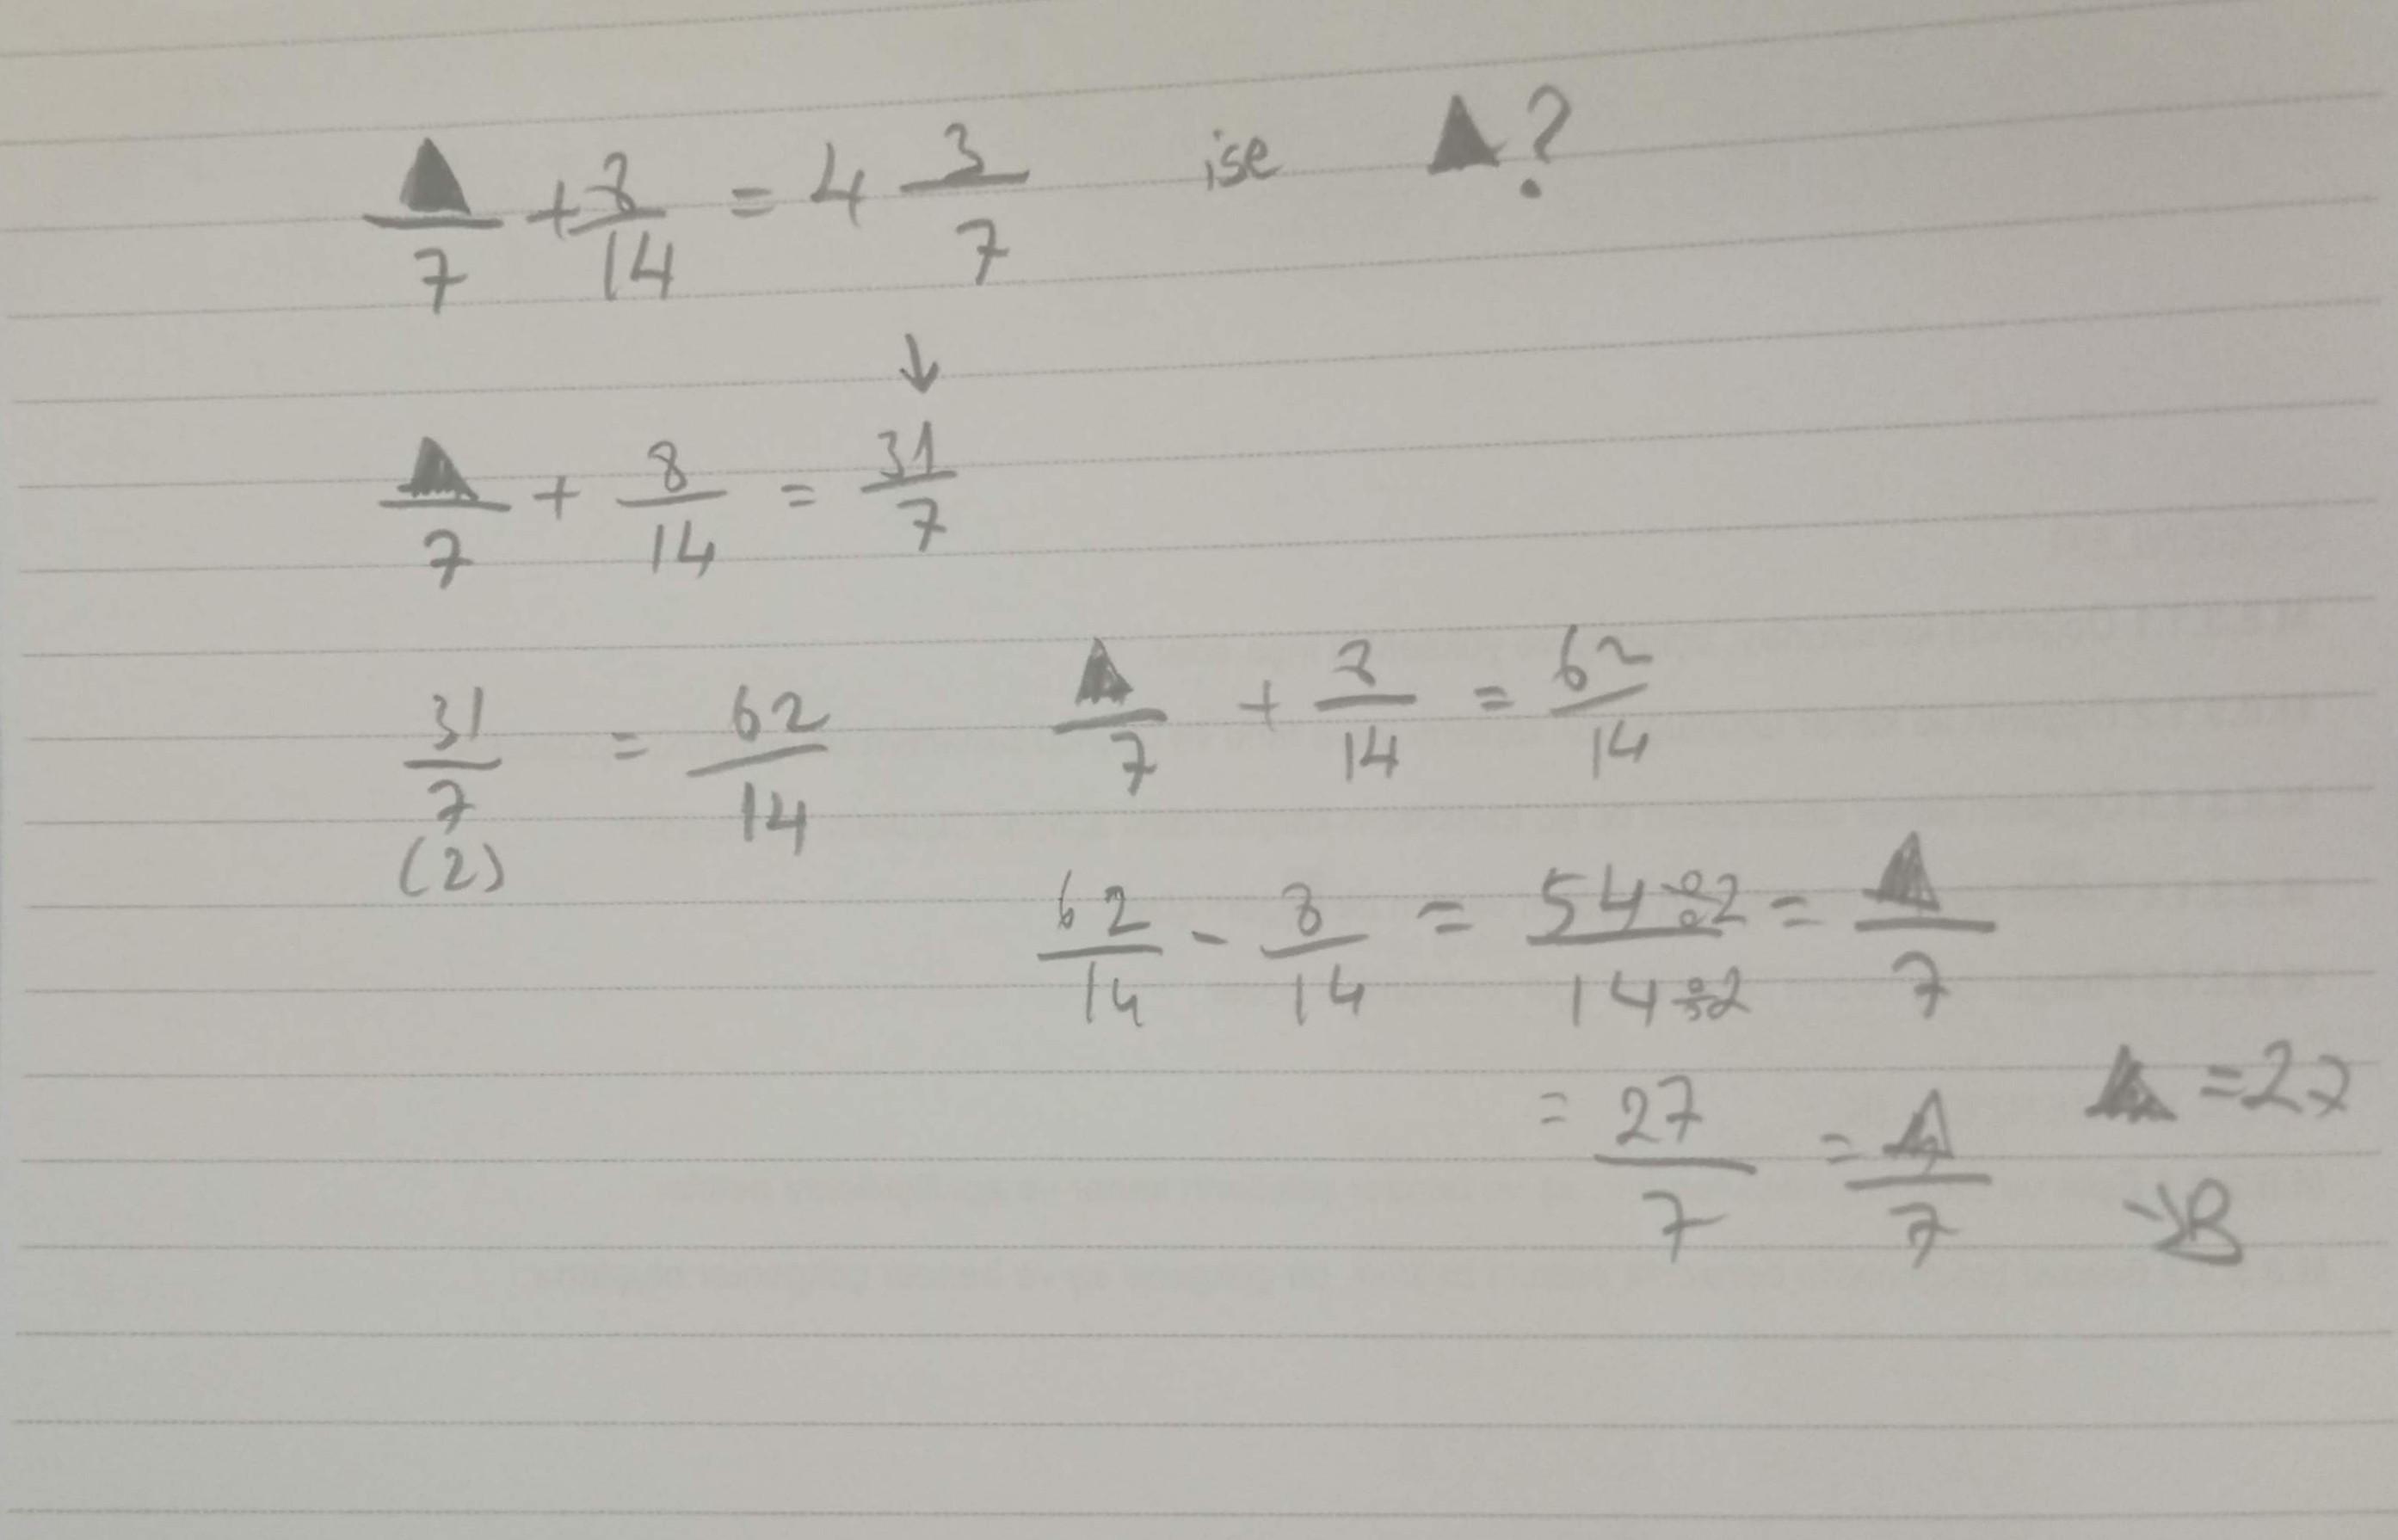 ▲/7 + 8/14 = 4 3/7 ise ▲?
↓
▲/7 + 8/14 = 31/7
31/7 (2) = 62/14
▲/7 + 8/14 = 62/14
62/14 - 8/14 = 54÷2/14÷2 = ▲/7
= 27/7 = ▲/7 ▲ = 27
→B